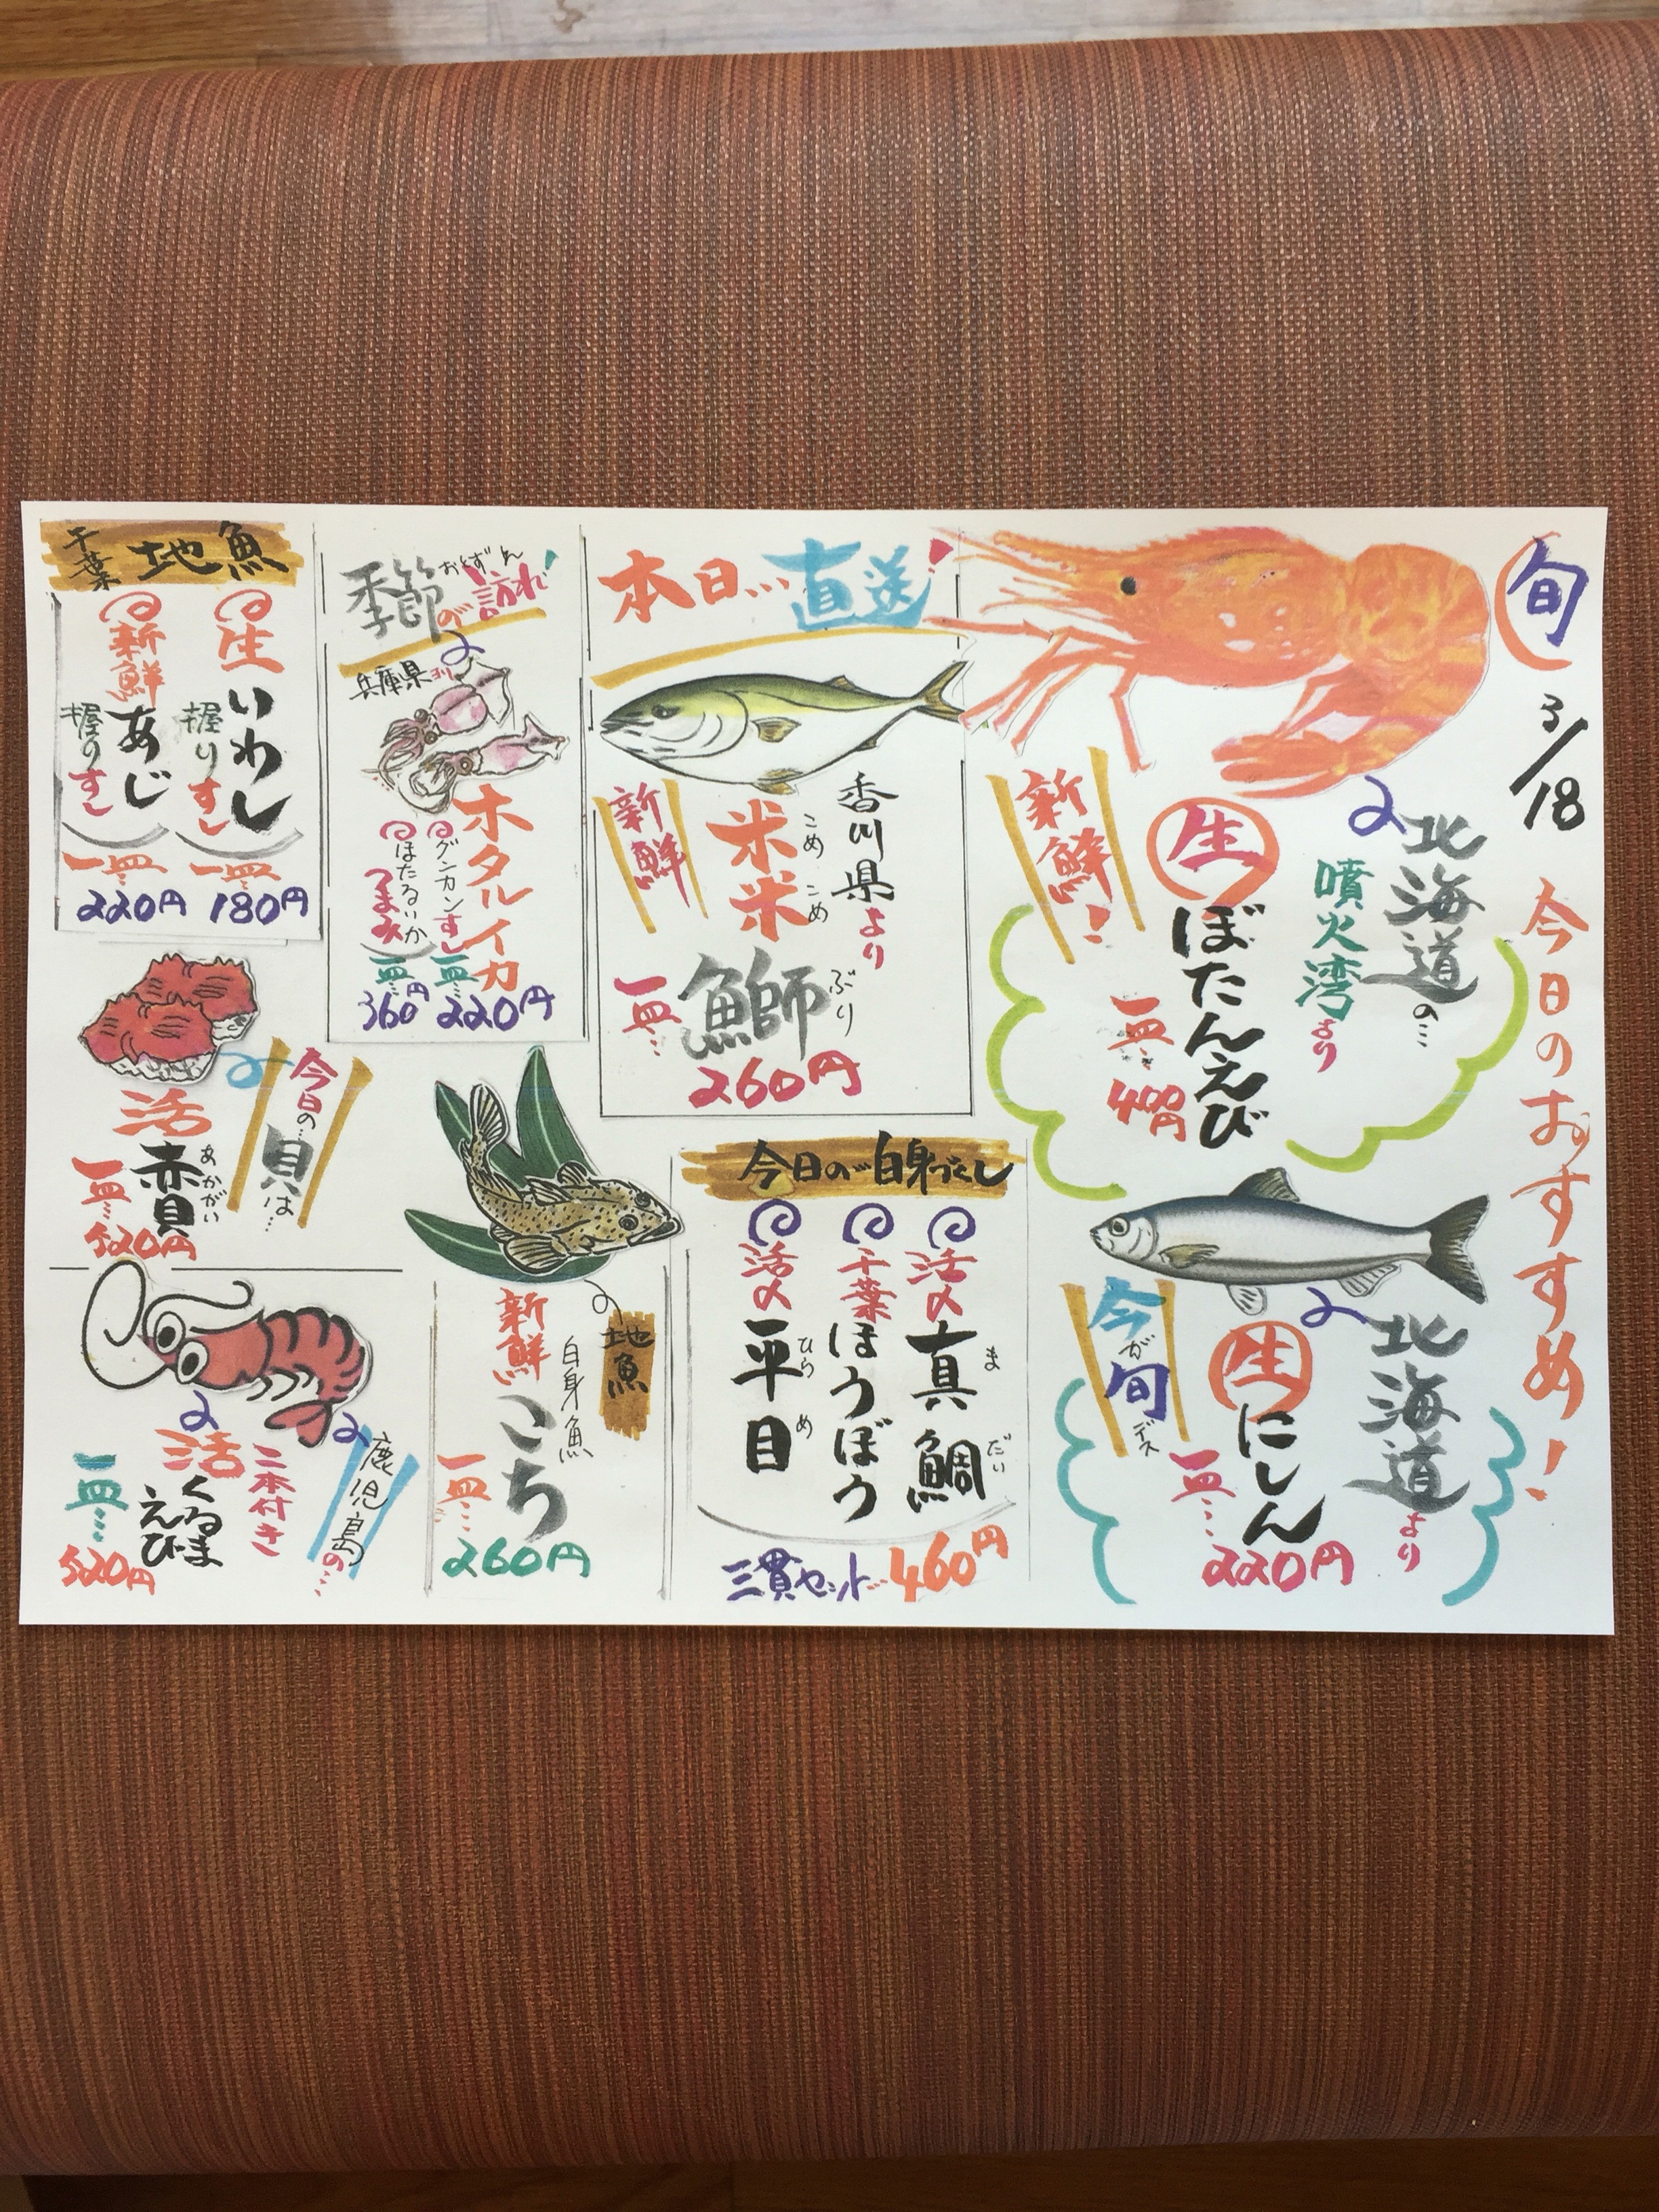 旬
3/18
今日のおすすめ!
北海道の…
噴火湾より
生ぼたんえび
新鮮!
一皿… 400円
北海道より
生にしん
今が旬デス
一皿… 220円
本日… 直送!
香川県より
米米 こめ こめ
鰤 ぶり
新鮮
一皿…
260円
今日の…白身づくし
活〆 真鯛 ま だい
千葉 ほうぼう
活〆 平目 ひら め
三貫セット… 460円
季節の訪れ!
兵庫県より
ホタルイカ
グンカンすし
一皿… 220円
ほたるいかつまみ
一皿… 360円
地魚
白身魚
新鮮
こち
一皿…
260円
千葉 地魚
生いわし
握りすし
一皿…
180円
新鮮あじ
握りすし
一皿…
220円
今日の…
貝は…
活
赤貝 あかがい
一皿…
520円
鹿児島の…
二本付き
活くるま
えび
一皿…
520円